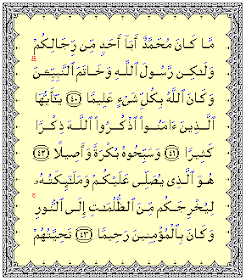 مَّا كَانَ مُحَمَّدٌ أَبَآ أَحَدٍ مِّن رِّجَالِكُمْ
وَلَٰكِن رَّسُولَ ٱللَّهِ وَخَاتَمَ ٱلنَّبِيِّـۧنَ
وَكَانَ ٱللَّهُ بِكُلِّ شَىْءٍ عَلِيمًا ﴿٤٠﴾ يَـٰٓأَيُّهَا
ٱلَّذِينَ ءَامَنُوا۟ ٱذْكُرُوا۟ ٱللَّهَ ذِكْرًا
كَثِيرًا ﴿٤١﴾ وَسَبِّحُوهُ بُكْرَةً وَأَصِيلًا ﴿٤٢﴾
هُوَ ٱلَّذِى يُصَلِّى عَلَيْكُمْ وَمَلَـٰٓئِكَتُهُۥ
لِيُخْرِجَكُم مِّنَ ٱلظُّلُمَـٰتِ إِلَى ٱلنُّورِ
وَكَانَ بِٱلْمُؤْمِنِينَ رَحِيمًا ﴿٤٣﴾ تَحِيَّتُهُمْ